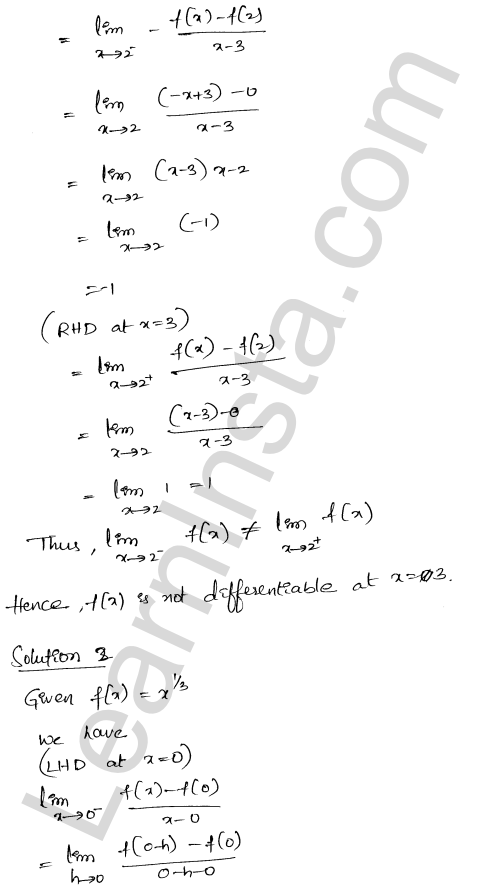 = lim x→2⁻ - f(x)-f(2) / x-3
= lim x→2 (-x+3) -0 / x-3
= lim x→2 (x-3) x-2
= lim x→2 (-1)
=-1
(RHD at x=3)
= lim x→2⁺ f(x) - f(2) / x-3
= lim x→2 (x-3)-0 / x-3
= lim x→2 1 = 1
Thus, lim x→2⁻ f(x) ≠ lim x→2⁺ f(x)
Hence, f(x) is not differentiable at x=3.
Solution 3
Given f(x) = x^1/3
we have
(LHD at x=0)
lim x→0⁻ f(x)-f(0) / x-0
= lim h→0 f(0-h) - f(0) / 0-h-0
LearnInsta.com